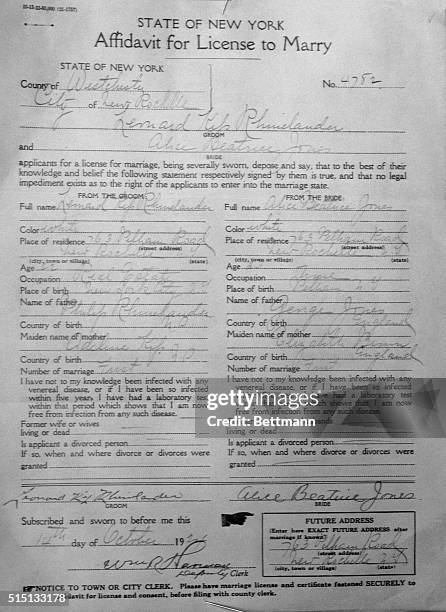 STATE OF NEW YORK
Affidavit for License to Marry
STATE OF NEW YORK
County of Westchester
No. 4782
City of New Rochelle
Leonard Kip Rhinelander
GROOM
and Alice Beatrice Jones
BRIDE
applicants for a license for marriage, being severally sworn, depose and say, that to the best of their
knowledge and belief the following statement respectively signed by them is true, and that no legal
impediment exists as to the right of the applicants to enter into the marriage state.
FROM THE GROOM:
Full name Leonard Kip Rhinelander
Color white
Place of residence 763 Pelham Road
(street address)
New Rochelle
(city, town or village) (state)
Age
Occupation Real Estate
Place of birth
Name of father
Philip Rhinelander
Country of birth
Maiden name of mother
Kip
Country of birth
Number of marriage First
I have not to my knowledge been infected with any
venereal disease, or if I have been so infected
within five years, I have had a laboratory test
within that period which shows that I am now
free from infection from any such disease.
Former wife or wives
living or dead
Is applicant a divorced person
If so, when and where divorce or divorces were
granted
FROM THE BRIDE:
Full name Alice Beatrice Jones
Color white
Place of residence 763 Pelham Road
(street address)
(city, town or village) (state)
Age
Occupation
Place of birth
Name of father
George Jones
Country of birth England
Maiden name of mother
Elizabeth
Country of birth England
Number of marriage
I have not to my knowledge been infected with any
venereal disease, or if I have been so infected
within five years, I have had a laboratory test
which shows that I am now
free from infection from any such disease.
living or dead
Is applicant a divorced person
If so, when and where divorce or divorces were
granted
gettyimages
Bettmann
Leonard Kip Rhinelander
GROOM
Alice Beatrice Jones
BRIDE
Subscribed and sworn to before me this
day of October 192
Deputy Clerk
FUTURE ADDRESS
(Enter here EXACT FUTURE ADDRESS after
marriage if known)
763 Pelham Road
(street address)
New Rochelle N.Y
(city, town or village) (state)
NOTICE TO TOWN OR CITY CLERK. Please have marriage license and certificate fastened SECURELY to
affidavit for license and consent, before filing with county clerk.
515133178